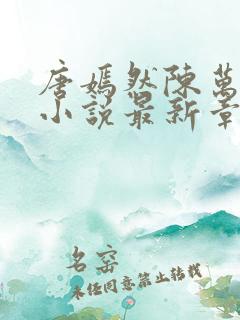 唐嫣然陳萬
小說最新章
名窑
未经同意禁止转载